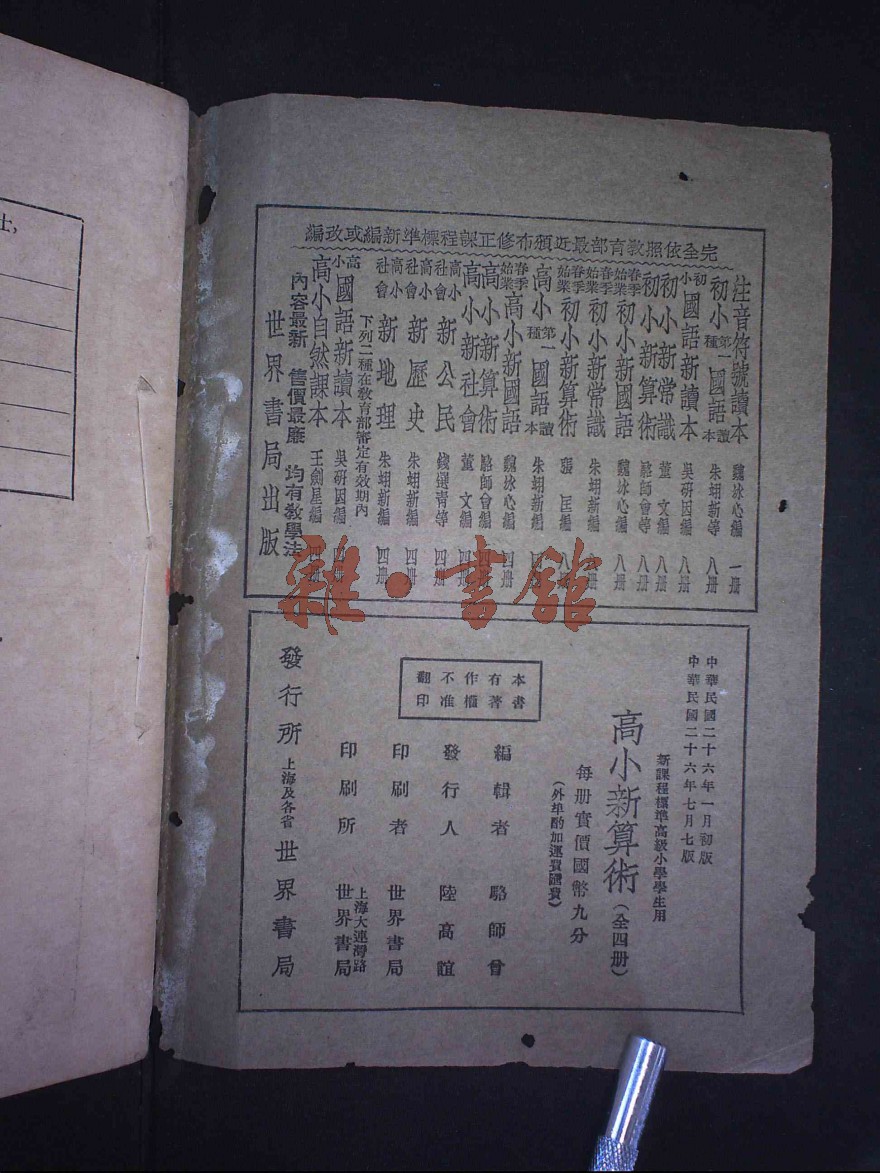 完全依照教育部最近頒布修正課程標準新編或改編
注音符號讀本 魏冰心編 一册
初小第一種國語讀本 朱翊新等 八册
初小國語新讀本 吳研因編 八册
初小新常識 董文編 八册
初小新算術 駱師曾等 八册
春季始業初小新國語 魏冰心編 八册
春季始業初小新常識 朱翊新編 册
春季始業初小新算術 匡編 八册
春季始業高小第一種國語讀本 朱翊新編 四册
春季始業高小新國語 魏冰心編 四册
高小新算術 駱師曾編 四册
高小新社會 董文編 四册
高小社會新公民 錢選青等 四册
高小社會新歷史 朱翊新編 四册
高小社會新地理 朱翊新編 四册
下列二種在敎育部審定有效期內
高小國語新讀本 吳研因編 四册
高小自然課本 王劍星編 四册
內容最新 售價最廉 均有敎學法
世界書局出版
雜·書館
中華民國二十六年一月初版
中華民國二十六年七月七版
新課程標準高級小學學生用
高小新算術(全四册)
每册實價國幣九分
(外埠酌加運費匯費)
本書有著作權不准翻印
編輯者 駱師曾
發行人 陸高誼
印刷者 世界書局
印刷所 上海大連灣路世界書局
發行所 上海及各省世界書局